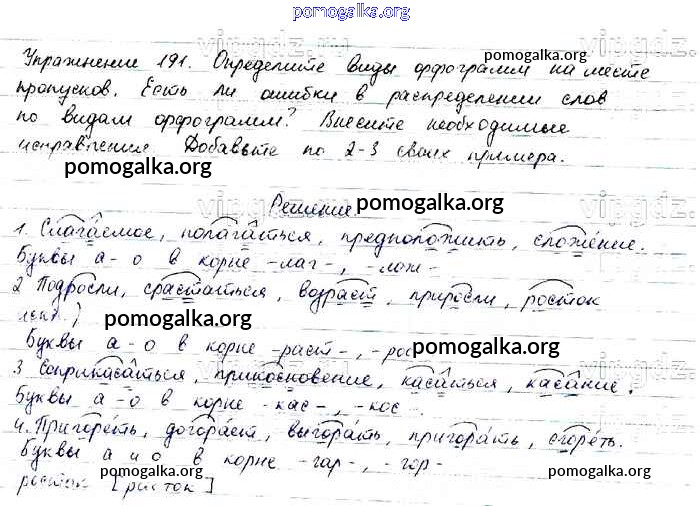 pomogalka.org
Упражнение 191. Определите виды орфограмм на месте
pomogalka.org
пропусков. Есть ли ошибки в распределении слов
по видам орфограмм? Внесите необходимые
исправления. Добавьте по 2-3 своих примера.
pomogalka.org
Решение.
pomogalka.org
1. Слагаемое, полагаться, предположить, сложение.
Буквы а-о в корне -лаг-, -лож-
2 Подросли, срастаться, возраст, приросли, росток
pomogalka.org
Буквы а-о в корне -раст-, -рос
pomogalka.org
3 Соприкасаться, прикосновение, касаться, касание.
Буквы а-о в корне -кас-, -кос-.
4. Пригореть, догорает, выгорать, пригорать, сгореть.
Буквы а и о в корне -гар-, -гор-
pomogalka.org
pomogalka.org
росток [росток]